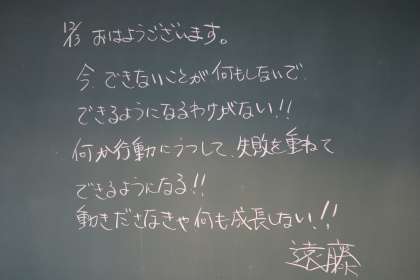 12/13 おはようございます。
今、できないことが何もしないで、
できるようになるわけがない!!
何か行動にうつして、失敗を重ねて
できるようになる!!
動きださなきゃ何も成長しない!!
遠藤